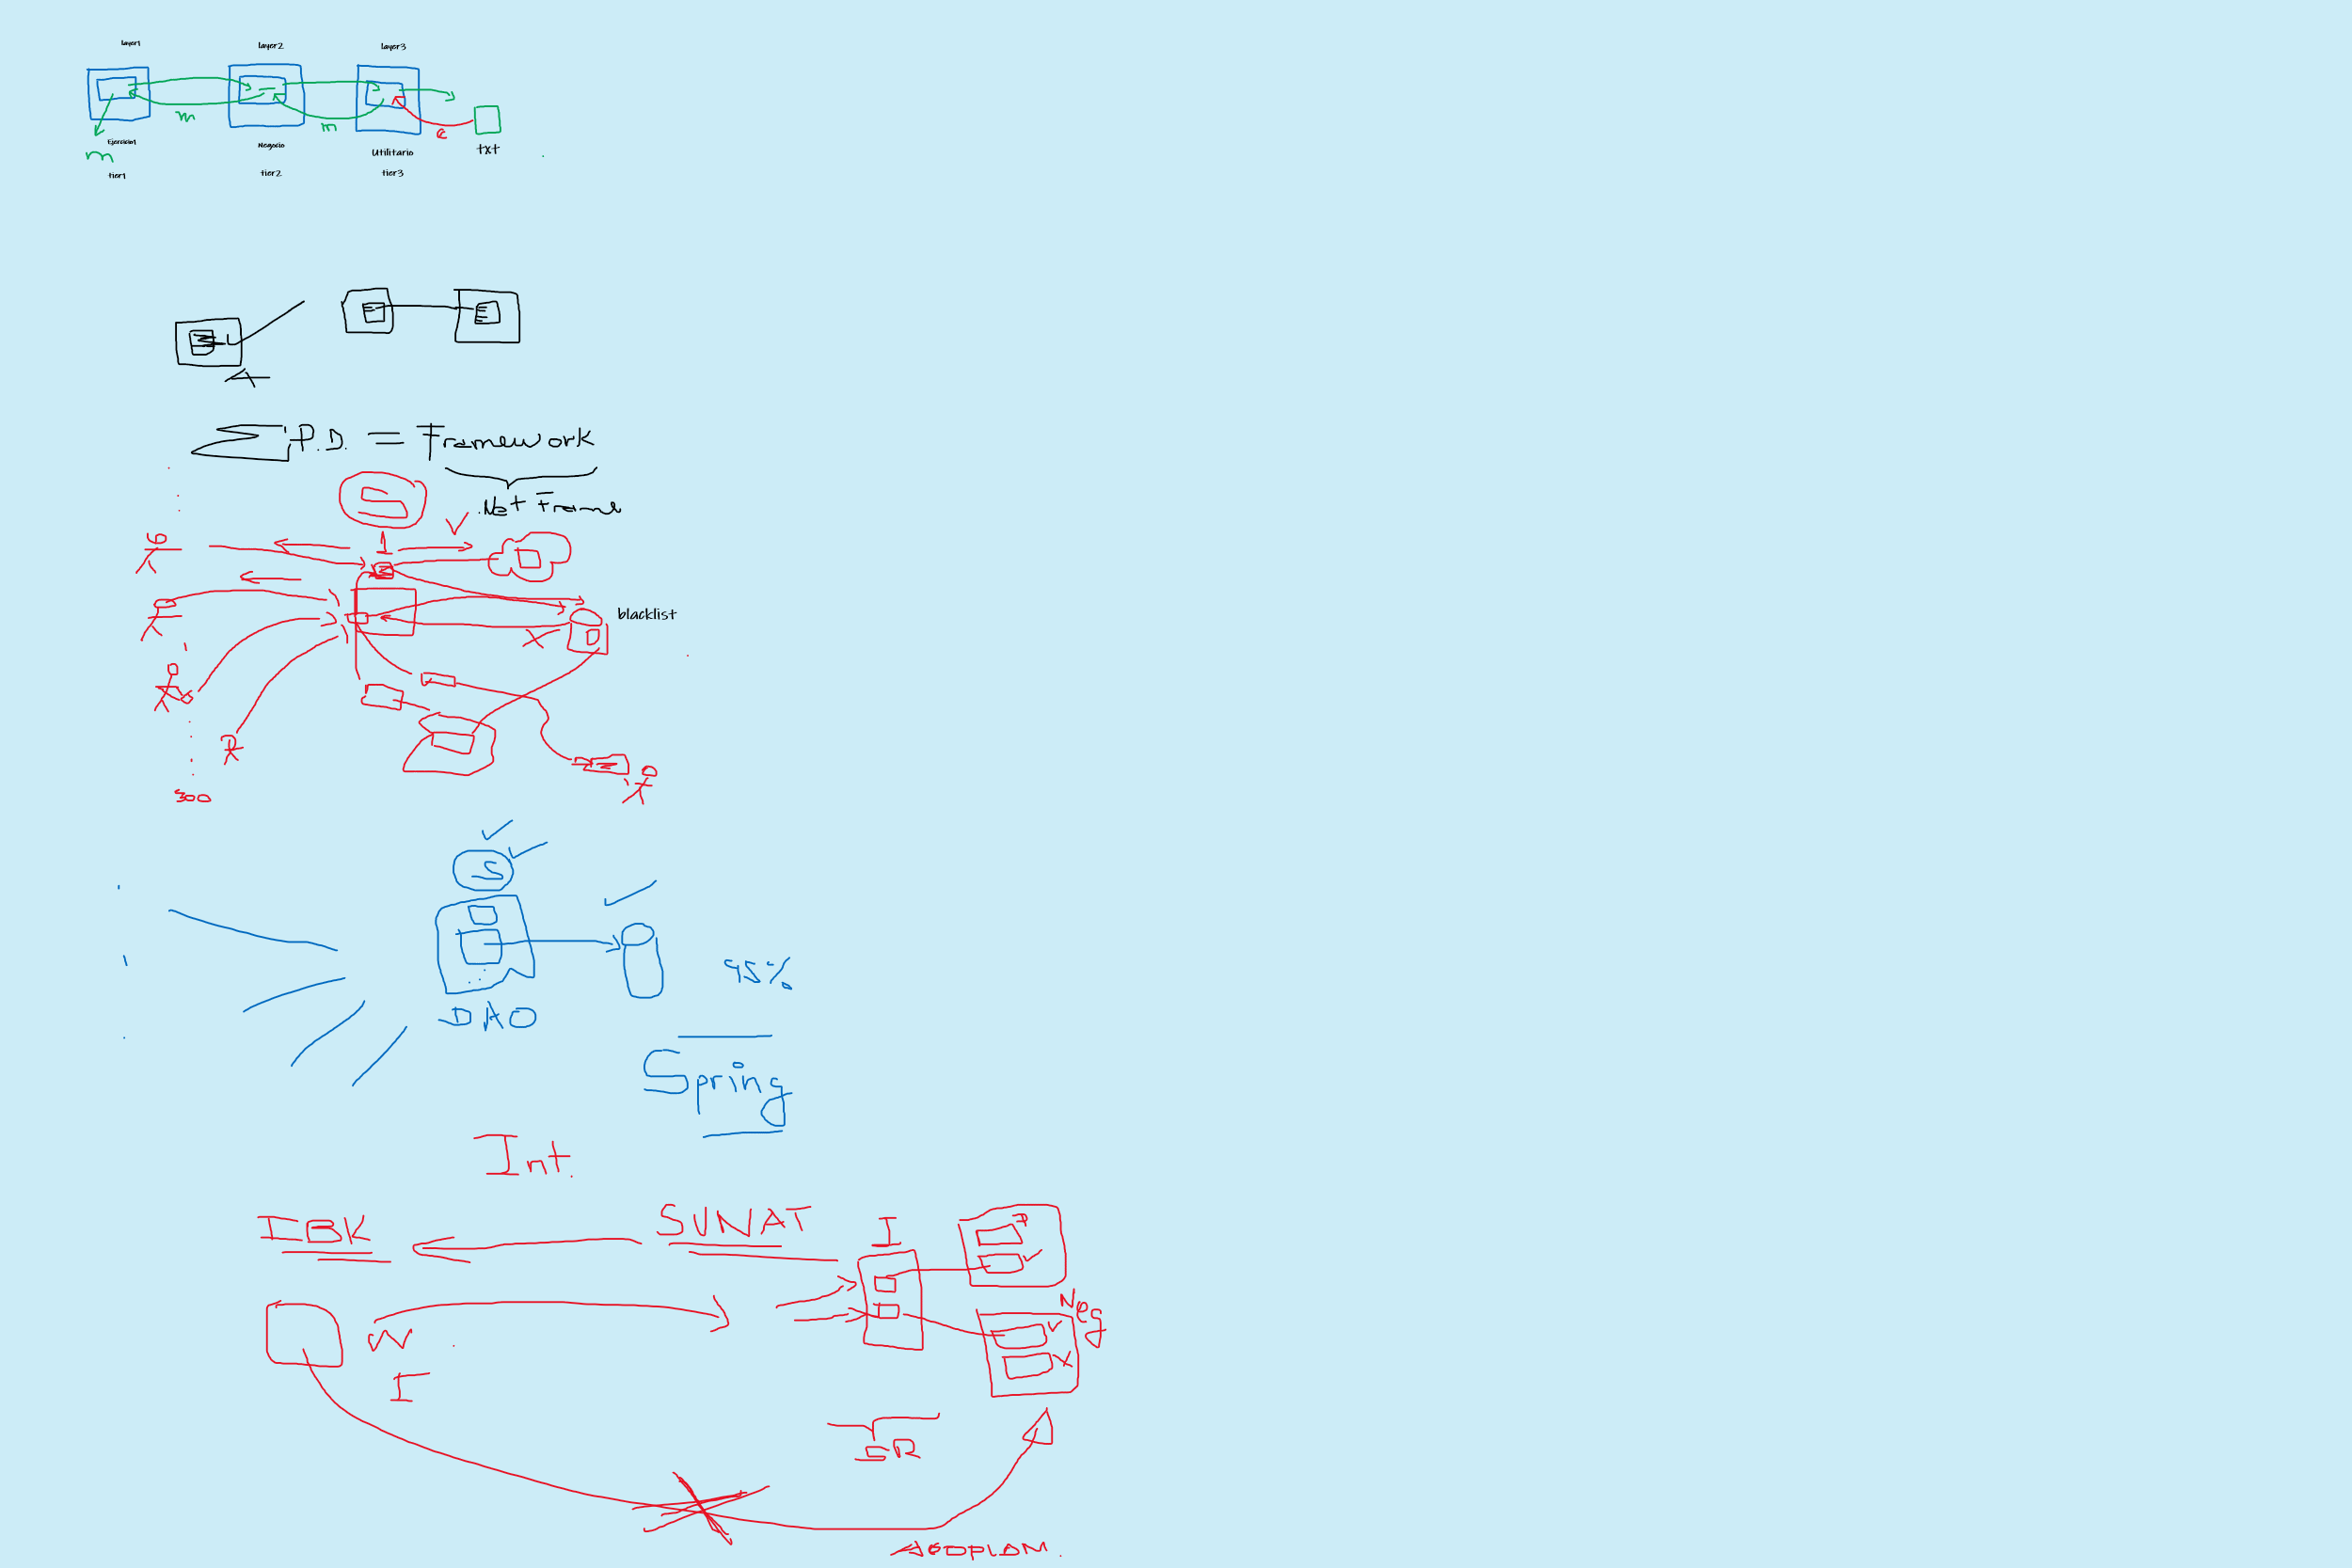 layer1 layer2 layer3
m m e
Ejercicio1 Negocio Utilitario txt
m
tier1 tier2 tier3
P.D. = Framework
.Net Frame
S
1
blacklist
300
S
95%
DAO
Spring
Int.
IBK SUNAT I
P
Neg
W
I
SR